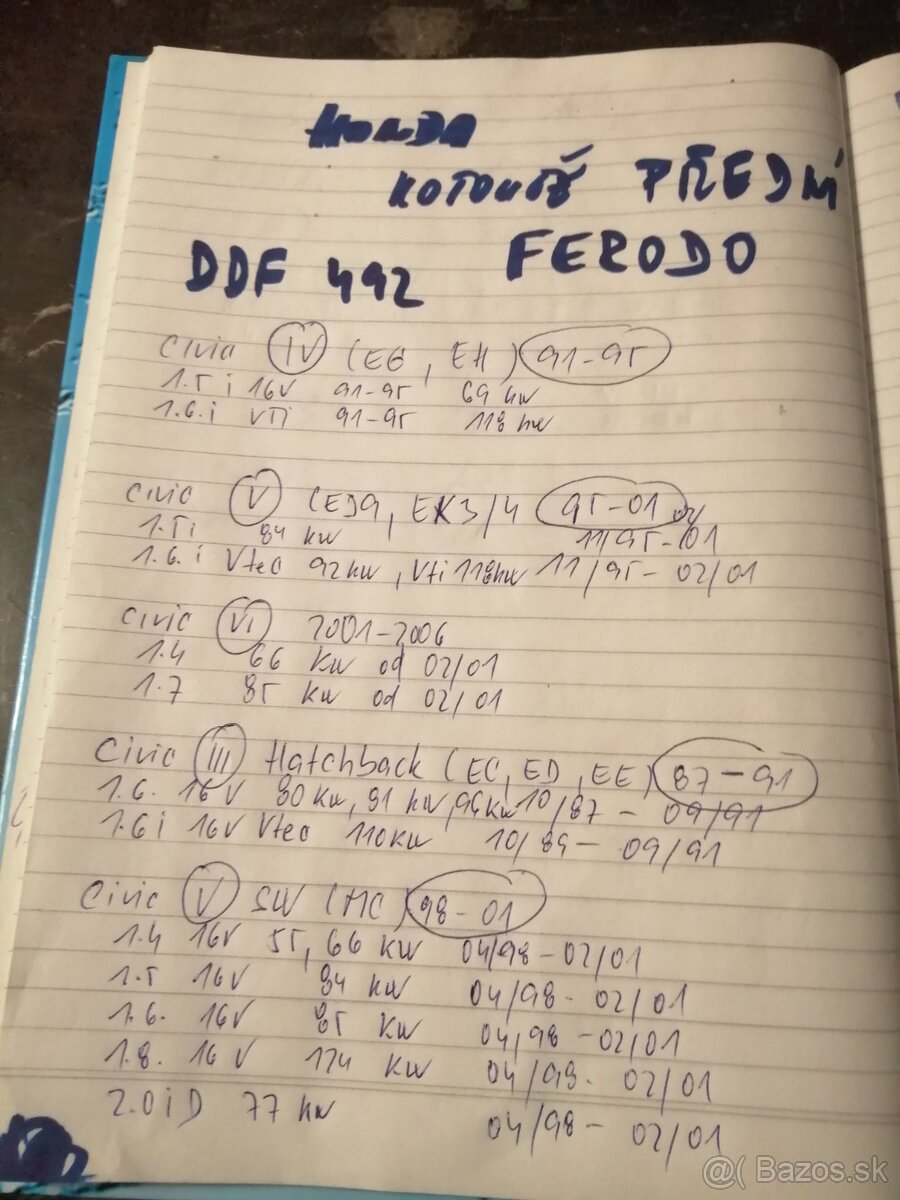 HONDA
KOTOUČ PŘEDNÍ
DDF 492 FERODO
Civic IV (EG, EH) 91-95
1.5 i 16V 91-95 69 kw
1.6.i VTi 91-95 118 kw
Civic V (EJ9, EK3/4 95-01
1.5i 84 kw 11/95-01
1.6.i Vtec 92kw, Vti 118kw 11/95- 02/01
Civic VI 2001-2006
1.4 66 Kw od 02/01
1.7 85 Kw od 02/01
Civic III Hatchback (EC, ED, EE) 87-91
1.6. 16V 80 Kw, 91 kw, 96kw 10/87 - 09/91
1.6i 16V Vtec 110Kw 10/89- 09/91
Civic V SW (MC) 98-01
1.4 16V 55, 66 Kw 04/98-02/01
1.5 16V 84 kw 04/98- 02/01
1.6. 16V 85 Kw 04/98 -02/01
1.8. 16V 124 Kw 04/98- 02/01
2.0 i D 77 kw 04/98- 02/01
@( Bazos.sk